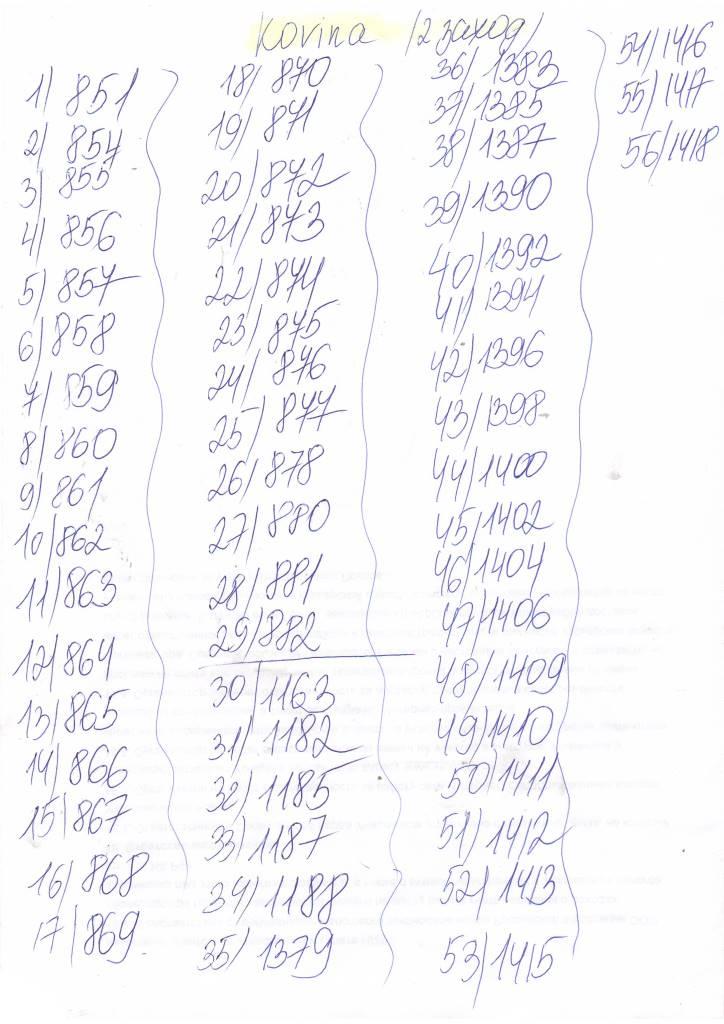 Kovina /2 заход/
1) 851
2) 854
3) 855
4) 856
5) 857
6) 858
7) 859
8) 860
9) 861
10) 862
11) 863
12) 864
13) 865
14) 866
15) 867
16) 868
17) 869
18) 870
19) 871
20) 872
21) 873
22) 874
23) 875
24) 876
25) 877
26) 878
27) 880
28) 881
29) 882
30) 1163
31) 1182
32) 1185
33) 1187
34) 1188
35) 1379
36) 1383
37) 1385
38) 1387
39) 1390
40) 1392
41) 1394
42) 1396
43) 1398
44) 1400
45) 1402
46) 1404
47) 1406
48) 1409
49) 1410
50) 1411
51) 1412
52) 1413
53) 1415
54) 1416
55) 1417
56) 1418